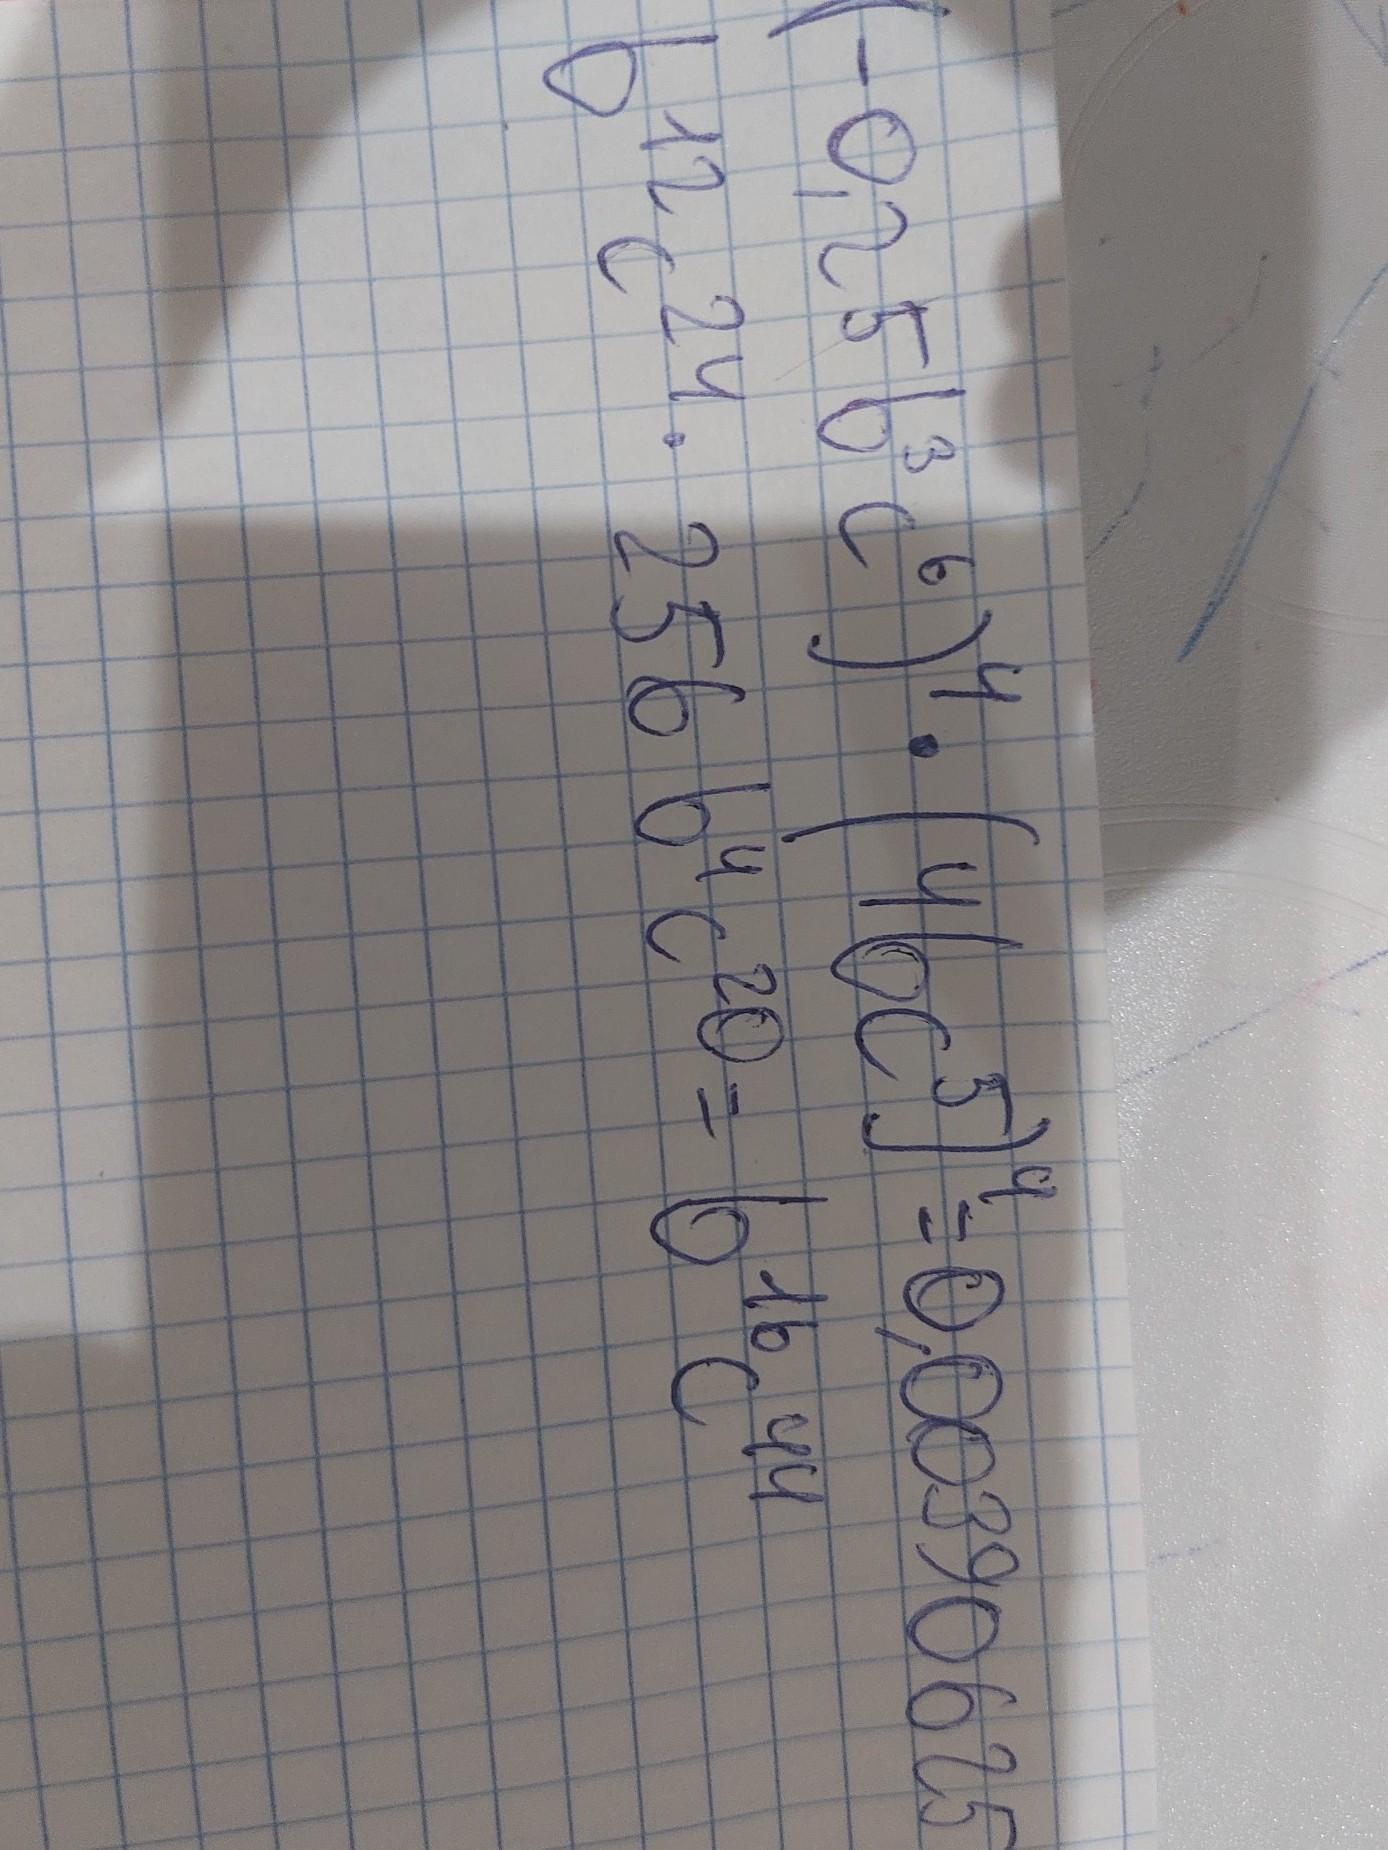 (-0,25b³c⁶)⁴ · (4bc⁵)⁴ = 0,00390625
b¹²c²⁴ · 256b⁴c²⁰ = b¹⁶c⁴⁴